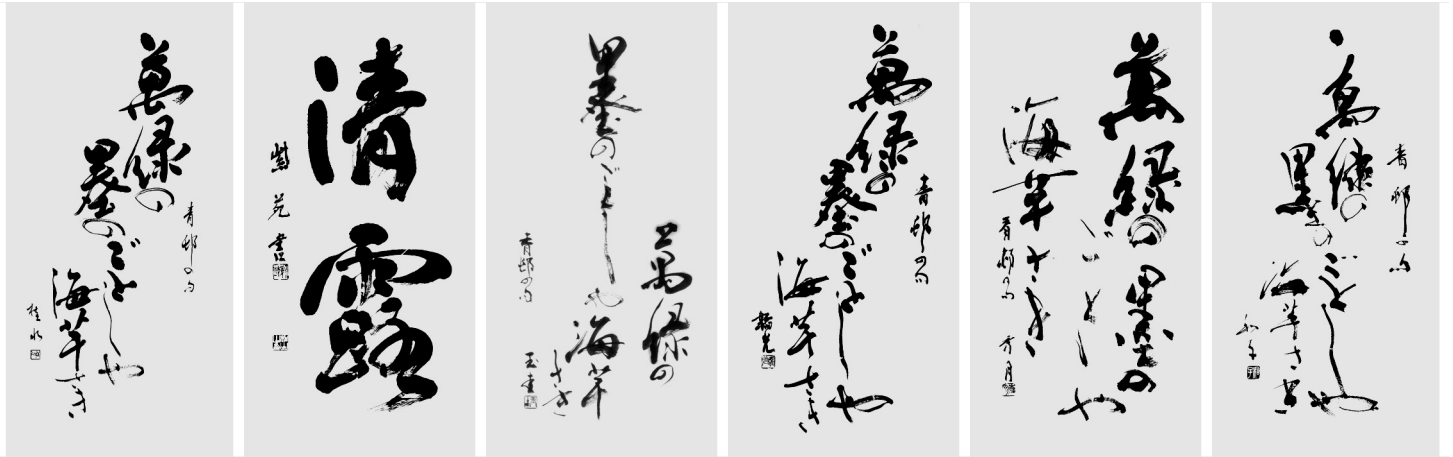 萬緑の
墨のごとしや
海芋さき
青邨の句
桂水
清露
紫苑書
萬緑の
墨のごとしや
海芋さき
青邨の句
萬緑の
墨のごとしや
海芋さき
青邨の句
萬緑の墨の
ごとしや
海芋さき
青邨の句
萬緑の
墨のごとしや
海芋さき
青邨の句